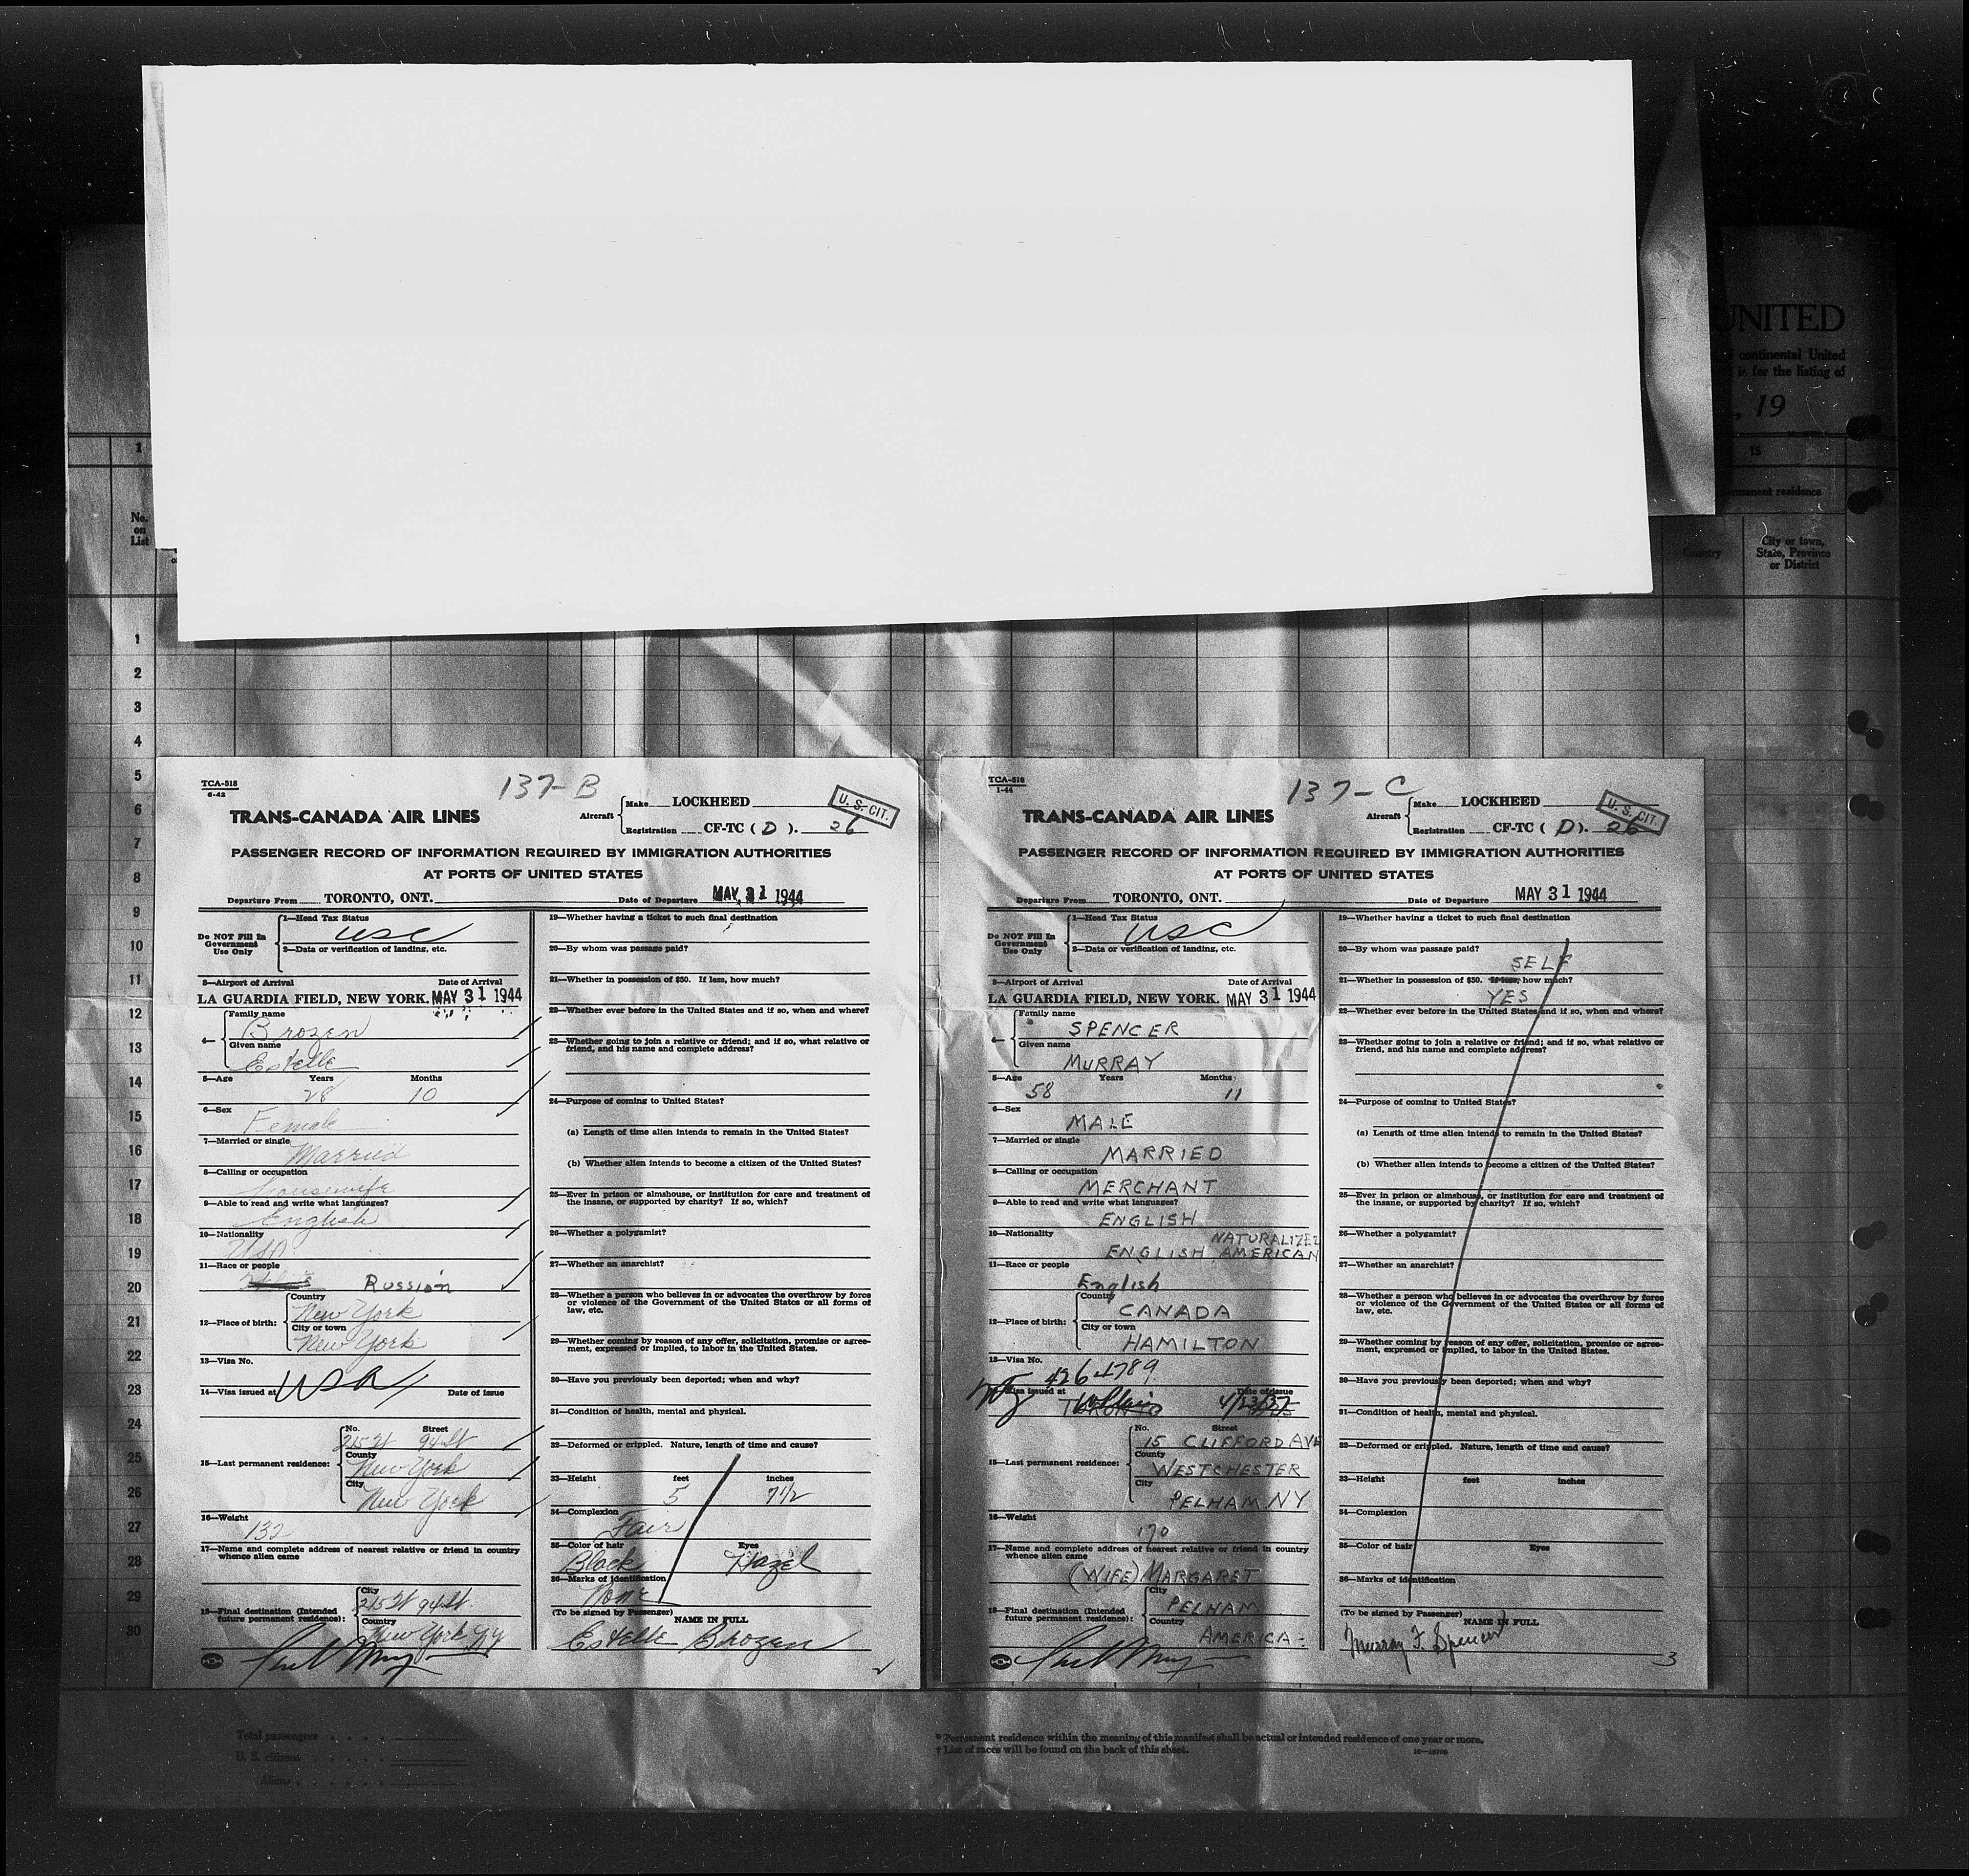 UNITED
continental United
is for the listing of
, 19
1
15
permanent residence
No.
on
List
Country
City or town,
State, Province
or District
1
2
3
4
5
6
7
8
9
10
11
12
13
14
15
16
17
18
19
20
21
22
23
24
25
26
27
28
29
30
TCA-518
6-42
137-B
TRANS-CANADA AIR LINES
Aircraft
Make LOCKHEED
Registration CF-TC (D). 26
U. S. CIT.
PASSENGER RECORD OF INFORMATION REQUIRED BY IMMIGRATION AUTHORITIES
AT PORTS OF UNITED STATES
Departure From TORONTO, ONT. Date of Departure MAY 31 1944
Do NOT Fill In
Government
Use Only
1—Head Tax Status
USC
2—Data or verification of landing, etc.
3—Airport of Arrival Date of Arrival
LA GUARDIA FIELD, NEW YORK. MAY 31 1944
4—
Family name
Brozen
Given name
Estelle
5—Age Years Months
28 10
6—Sex
Female
7—Married or single
Married
8—Calling or occupation
housewife
9—Able to read and write what languages?
English
10—Nationality
USA
11—Race or people
Russian
12—Place of birth:
Country
New York
City or town
New York
13—Visa No.
14—Visa issued at USA Date of issue
15—Last permanent residence:
No. Street
215 W 94 St
County
New York
City
New York
16—Weight
132
17—Name and complete address of nearest relative or friend in country
whence alien came
18—Final destination (Intended
future permanent residence):
City
215 W 94 St.
Country
New York NY
19—Whether having a ticket to such final destination
20—By whom was passage paid?
21—Whether in possession of $50. If less, how much?
22—Whether ever before in the United States and if so, when and where?
23—Whether going to join a relative or friend; and if so, what relative or
friend, and his name and complete address?
24—Purpose of coming to United States?
(a) Length of time alien intends to remain in the United States?
(b) Whether alien intends to become a citizen of the United States?
25—Ever in prison or almshouse, or institution for care and treatment of
the insane, or supported by charity? If so, which?
26—Whether a polygamist?
27—Whether an anarchist?
28—Whether a person who believes in or advocates the overthrow by force
or violence of the Government of the United States or all forms of
law, etc.
29—Whether coming by reason of any offer, solicitation, promise or agree-
ment, expressed or implied, to labor in the United States.
30—Have you previously been deported; when and why?
31—Condition of health, mental and physical.
32—Deformed or crippled. Nature, length of time and cause?
33—Height feet inches
5 7 1/2
34—Complexion
Fair
35—Color of hair Eyes
Black Hazel
36—Marks of identification
None
(To be signed by Passenger) NAME IN FULL
Estelle Brozen
2
TCA-518
1-44
137-C
TRANS-CANADA AIR LINES
Aircraft
Make LOCKHEED
Registration CF-TC (D). 26
U. S. CIT.
PASSENGER RECORD OF INFORMATION REQUIRED BY IMMIGRATION AUTHORITIES
AT PORTS OF UNITED STATES
Departure From TORONTO, ONT. Date of Departure MAY 31 1944
Do NOT Fill In
Government
Use Only
1—Head Tax Status
USC
2—Data or verification of landing, etc.
3—Airport of Arrival Date of Arrival
LA GUARDIA FIELD, NEW YORK. MAY 31 1944
4—
Family name
SPENCER
Given name
MURRAY
5—Age Years Months
58 11
6—Sex
MALE
7—Married or single
MARRIED
8—Calling or occupation
MERCHANT
9—Able to read and write what languages?
ENGLISH
10—Nationality NATURALIZED
ENGLISH AMERICAN
11—Race or people
English
12—Place of birth:
Country
CANADA
City or town
HAMILTON
13—Visa No.
4264789
Visa issued at Date of issue
TORONTO 4/23/37
15—Last permanent residence:
No. Street
15 CLIFFORD AVE
County
WESTCHESTER
City
PELHAM NY
16—Weight
170
17—Name and complete address of nearest relative or friend in country
whence alien came
(WIFE) MARGARET
18—Final destination (Intended
future permanent residence):
City
PELHAM
Country
AMERICA
19—Whether having a ticket to such final destination
20—By whom was passage paid?
SELF
21—Whether in possession of $50. If less, how much?
YES
22—Whether ever before in the United States and if so, when and where?
23—Whether going to join a relative or friend; and if so, what relative or
friend, and his name and complete address?
24—Purpose of coming to United States?
(a) Length of time alien intends to remain in the United States?
(b) Whether alien intends to become a citizen of the United States?
25—Ever in prison or almshouse, or institution for care and treatment of
the insane, or supported by charity? If so, which?
26—Whether a polygamist?
27—Whether an anarchist?
28—Whether a person who believes in or advocates the overthrow by force
or violence of the Government of the United States or all forms of
law, etc.
29—Whether coming by reason of any offer, solicitation, promise or agree-
ment, expressed or implied, to labor in the United States.
30—Have you previously been deported; when and why?
31—Condition of health, mental and physical.
32—Deformed or crippled. Nature, length of time and cause?
33—Height feet inches
34—Complexion
35—Color of hair Eyes
36—Marks of identification
(To be signed by Passenger) NAME IN FULL
Murray F. Spencer
3
Total passengers
U. S. citizens
Aliens
* Permanent residence within the meaning of this manifest shall be actual or intended residence of one year or more.
† List of races will be found on the back of this sheet.